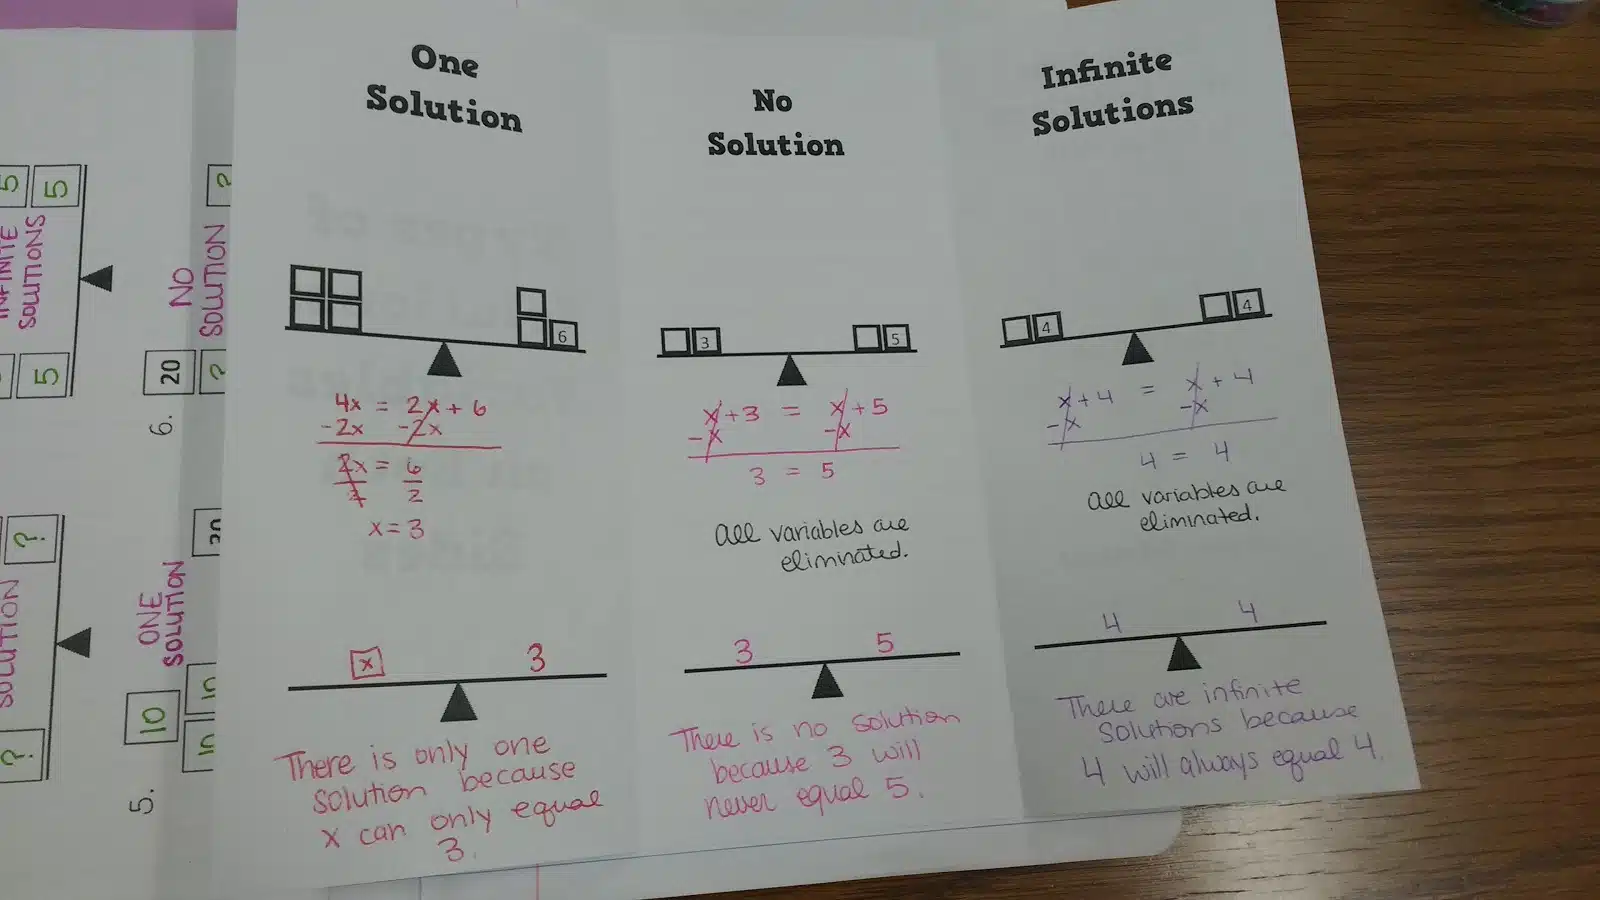 One
Solution
6
4x = 2x + 6
-2x -2x
2x = 6
2 2
x = 3
x 3
There is only one
solution because
x can only equal
3.
No
Solution
3 5
x + 3 = x + 5
-x -x
3 = 5
all variables are
eliminated.
3 5
There is no solution
because 3 will
never equal 5.
Infinite
Solutions
4 4
x + 4 = x + 4
-x -x
4 = 4
all variables are
eliminated.
4 4
There are infinite
solutions because
4 will always equal 4.
5 5
INFINITE
SOLUTIONS
5
6.
20
?
NO
SOLUTION
?
?
SOLUTION
?
5.
10
10 10
ONE
SOLUTION
20